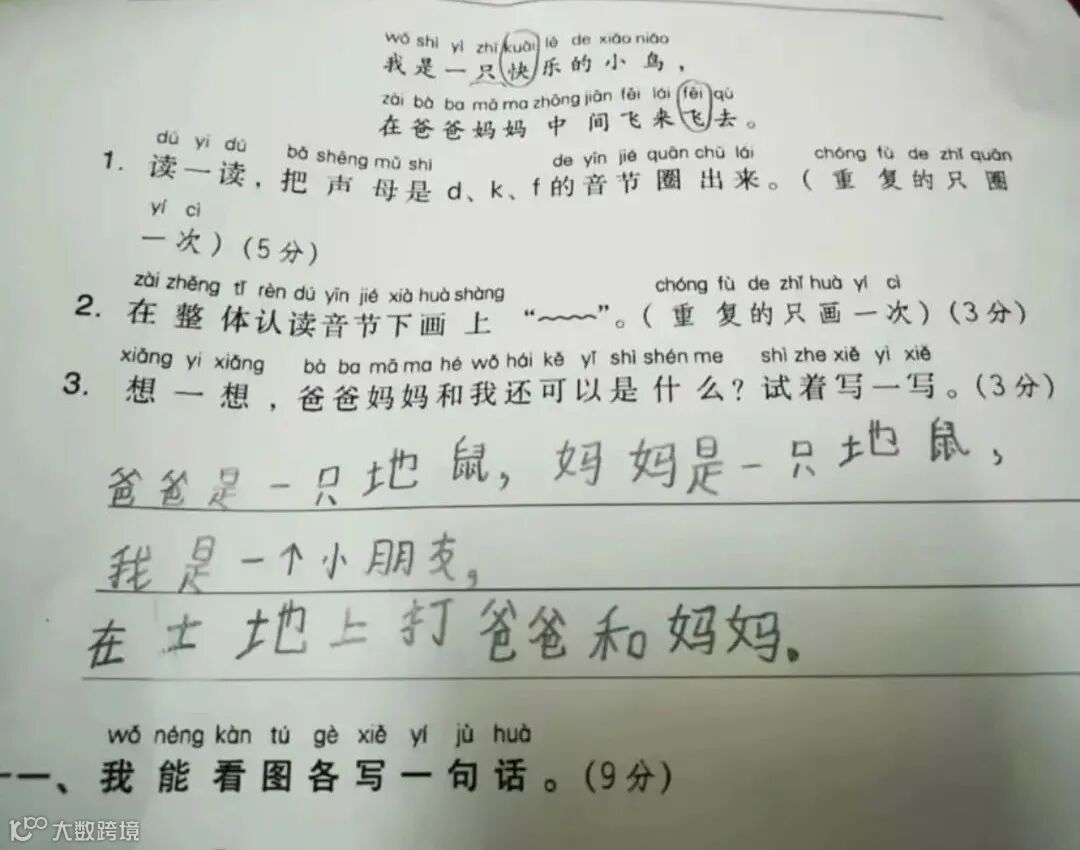 wǒ shì yì zhī kuài lè de xiǎo niǎo
我是一只快乐的小鸟，
zài bà ba mā ma zhōng jiān fēi lái fēi qù
在爸爸妈妈中间飞来飞去。
dú yi dú bǎ shēng mǔ shì de yīn jié quān chū lái chóng fù de zhǐ quān
1. 读一读，把声母是d、k、f的音节圈出来。（重复的只圈
yí cì
一次）(5分)
zài zhěng tǐ rèn dú yīn jié xià huà shàng chóng fù de zhǐ huà yí cì
2. 在整体认读音节下画上“﹏﹏”。（重复的只画一次）(3分)
xiǎng yi xiǎng bà ba mā ma hé wǒ hái kě yǐ shì shén me shì zhe xiě yi xiě
3. 想一想，爸爸妈妈和我还可以是什么？试着写一写。(3分)
爸爸是一只地鼠，妈妈是一只地鼠，
我是一个小朋友，
在土地上打爸爸和妈妈.
wǒ néng kàn tú gè xiě yí jù huà
一、我能看图各写一句话。(9分)
大数跨境